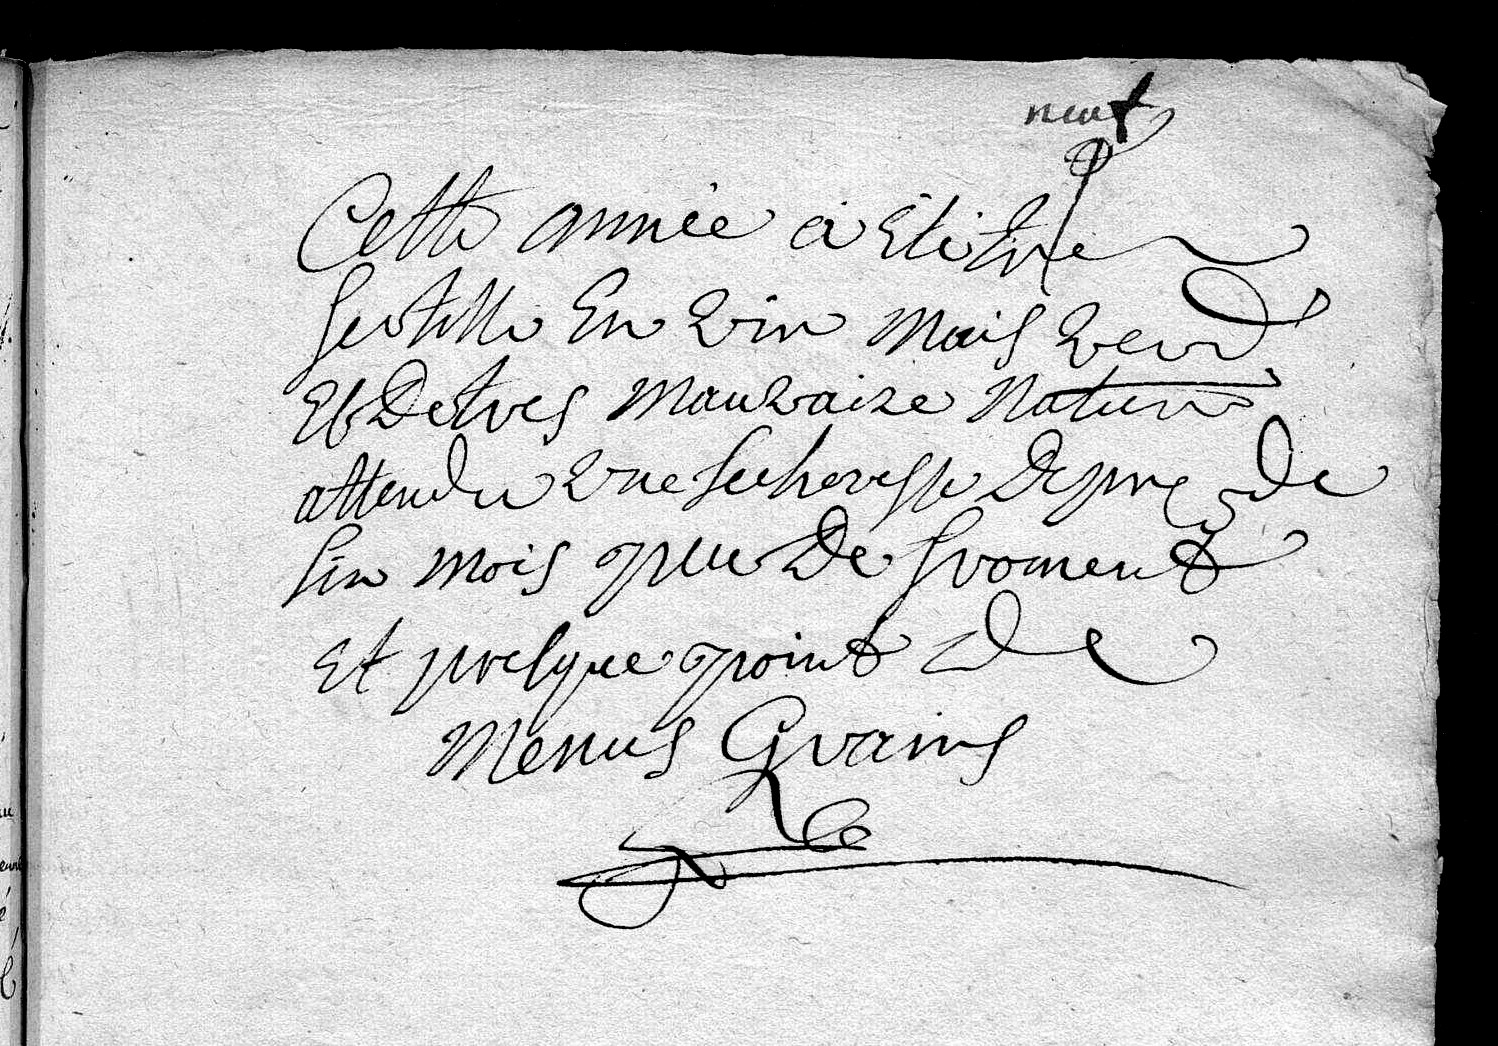 neuf
Cette année à Eté tre
fertille En vin mais verd
Et De tres mauvaize Nature
attendu vne secheresse De pres de
six mois peu De froment
Et presque point de
Menus Grains